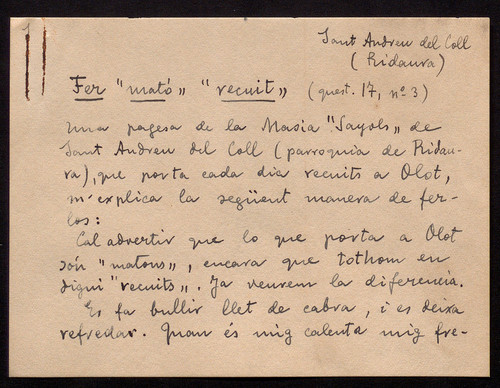 Sant Andreu del Coll
(Ridaura)
Fer "mató" "recuit" (quest. 17, nº 3)
Una pagesa de la Masia "Sayols" de
Sant Andreu del Coll (parroquia de Ridau-
ra), que porta cada dia recuits a Olot,
m'explica la següent manera de fer-
los:
Cal advertir que lo que porta a Olot
són "matons", encara que tothom en
digui "recuits". Ja veurem la diferencia.
Es fa bullir llet de cabra, i es deixa
refredar. Quan és mig calenta mig fre-